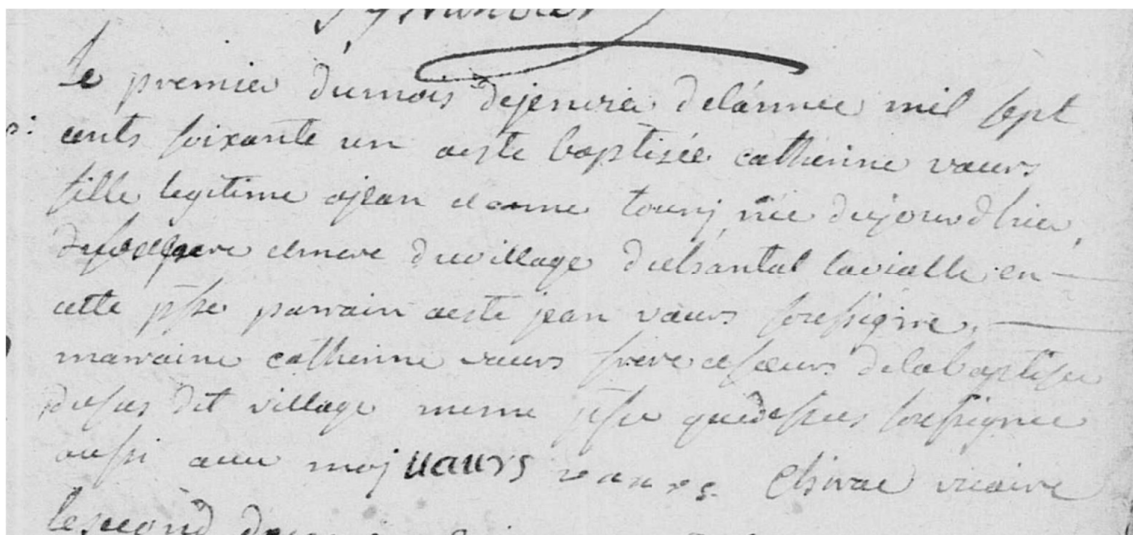 Le premier du mois de jenvier de l'année mil sept
cents soixante un a esté baptisée catherine vaurs
fille legitime a jean et anne tourij née du jourd'hier
pere et mere du village del chantal lavialle en
cette psse parrain a esté jean vaurs soussigné
marraine catherine vaurs frère et sœurs de la baptisée
du sus dit village meme psse que dessus soussignée
aussi avec moj vaurs vaurs chirac vicaire
Le second